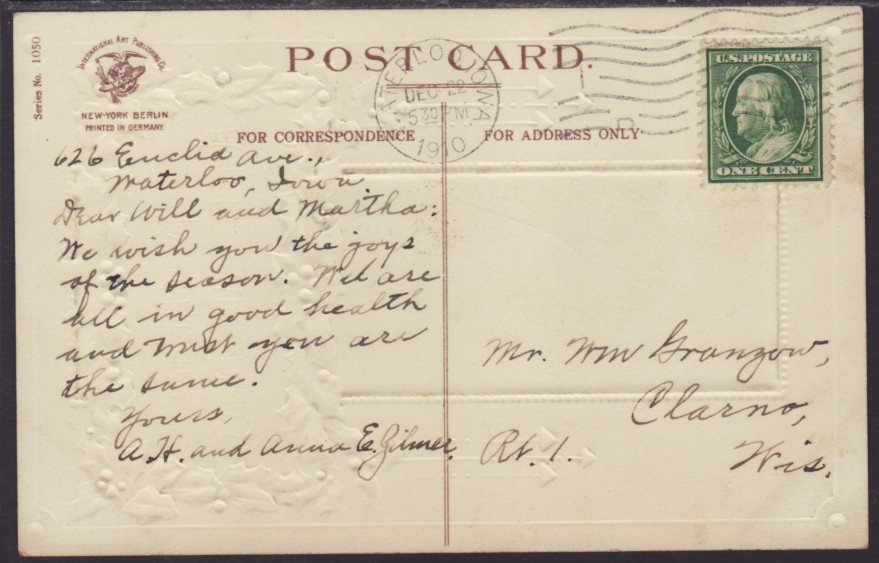 Series No. 1050
INTERNATIONAL ART PUBLISHING CO.
NEW-YORK BERLIN
PRINTED IN GERMANY.
POST CARD.
WATERLOO, IOWA
DEC 22
530 PM
1910
U.S. POSTAGE
ONE CENT
FOR CORRESPONDENCE
FOR ADDRESS ONLY
626 Euclid Ave.,
Waterloo, Iowa
Dear Will and Martha:
We wish you the joys
of the season. We are
all in good health
and trust you are
the same.
Yours,
A.H. and Anna E. Gilmer.
Mr. Wm Granzow,
Clarno,
Rt. 1.
Wis.